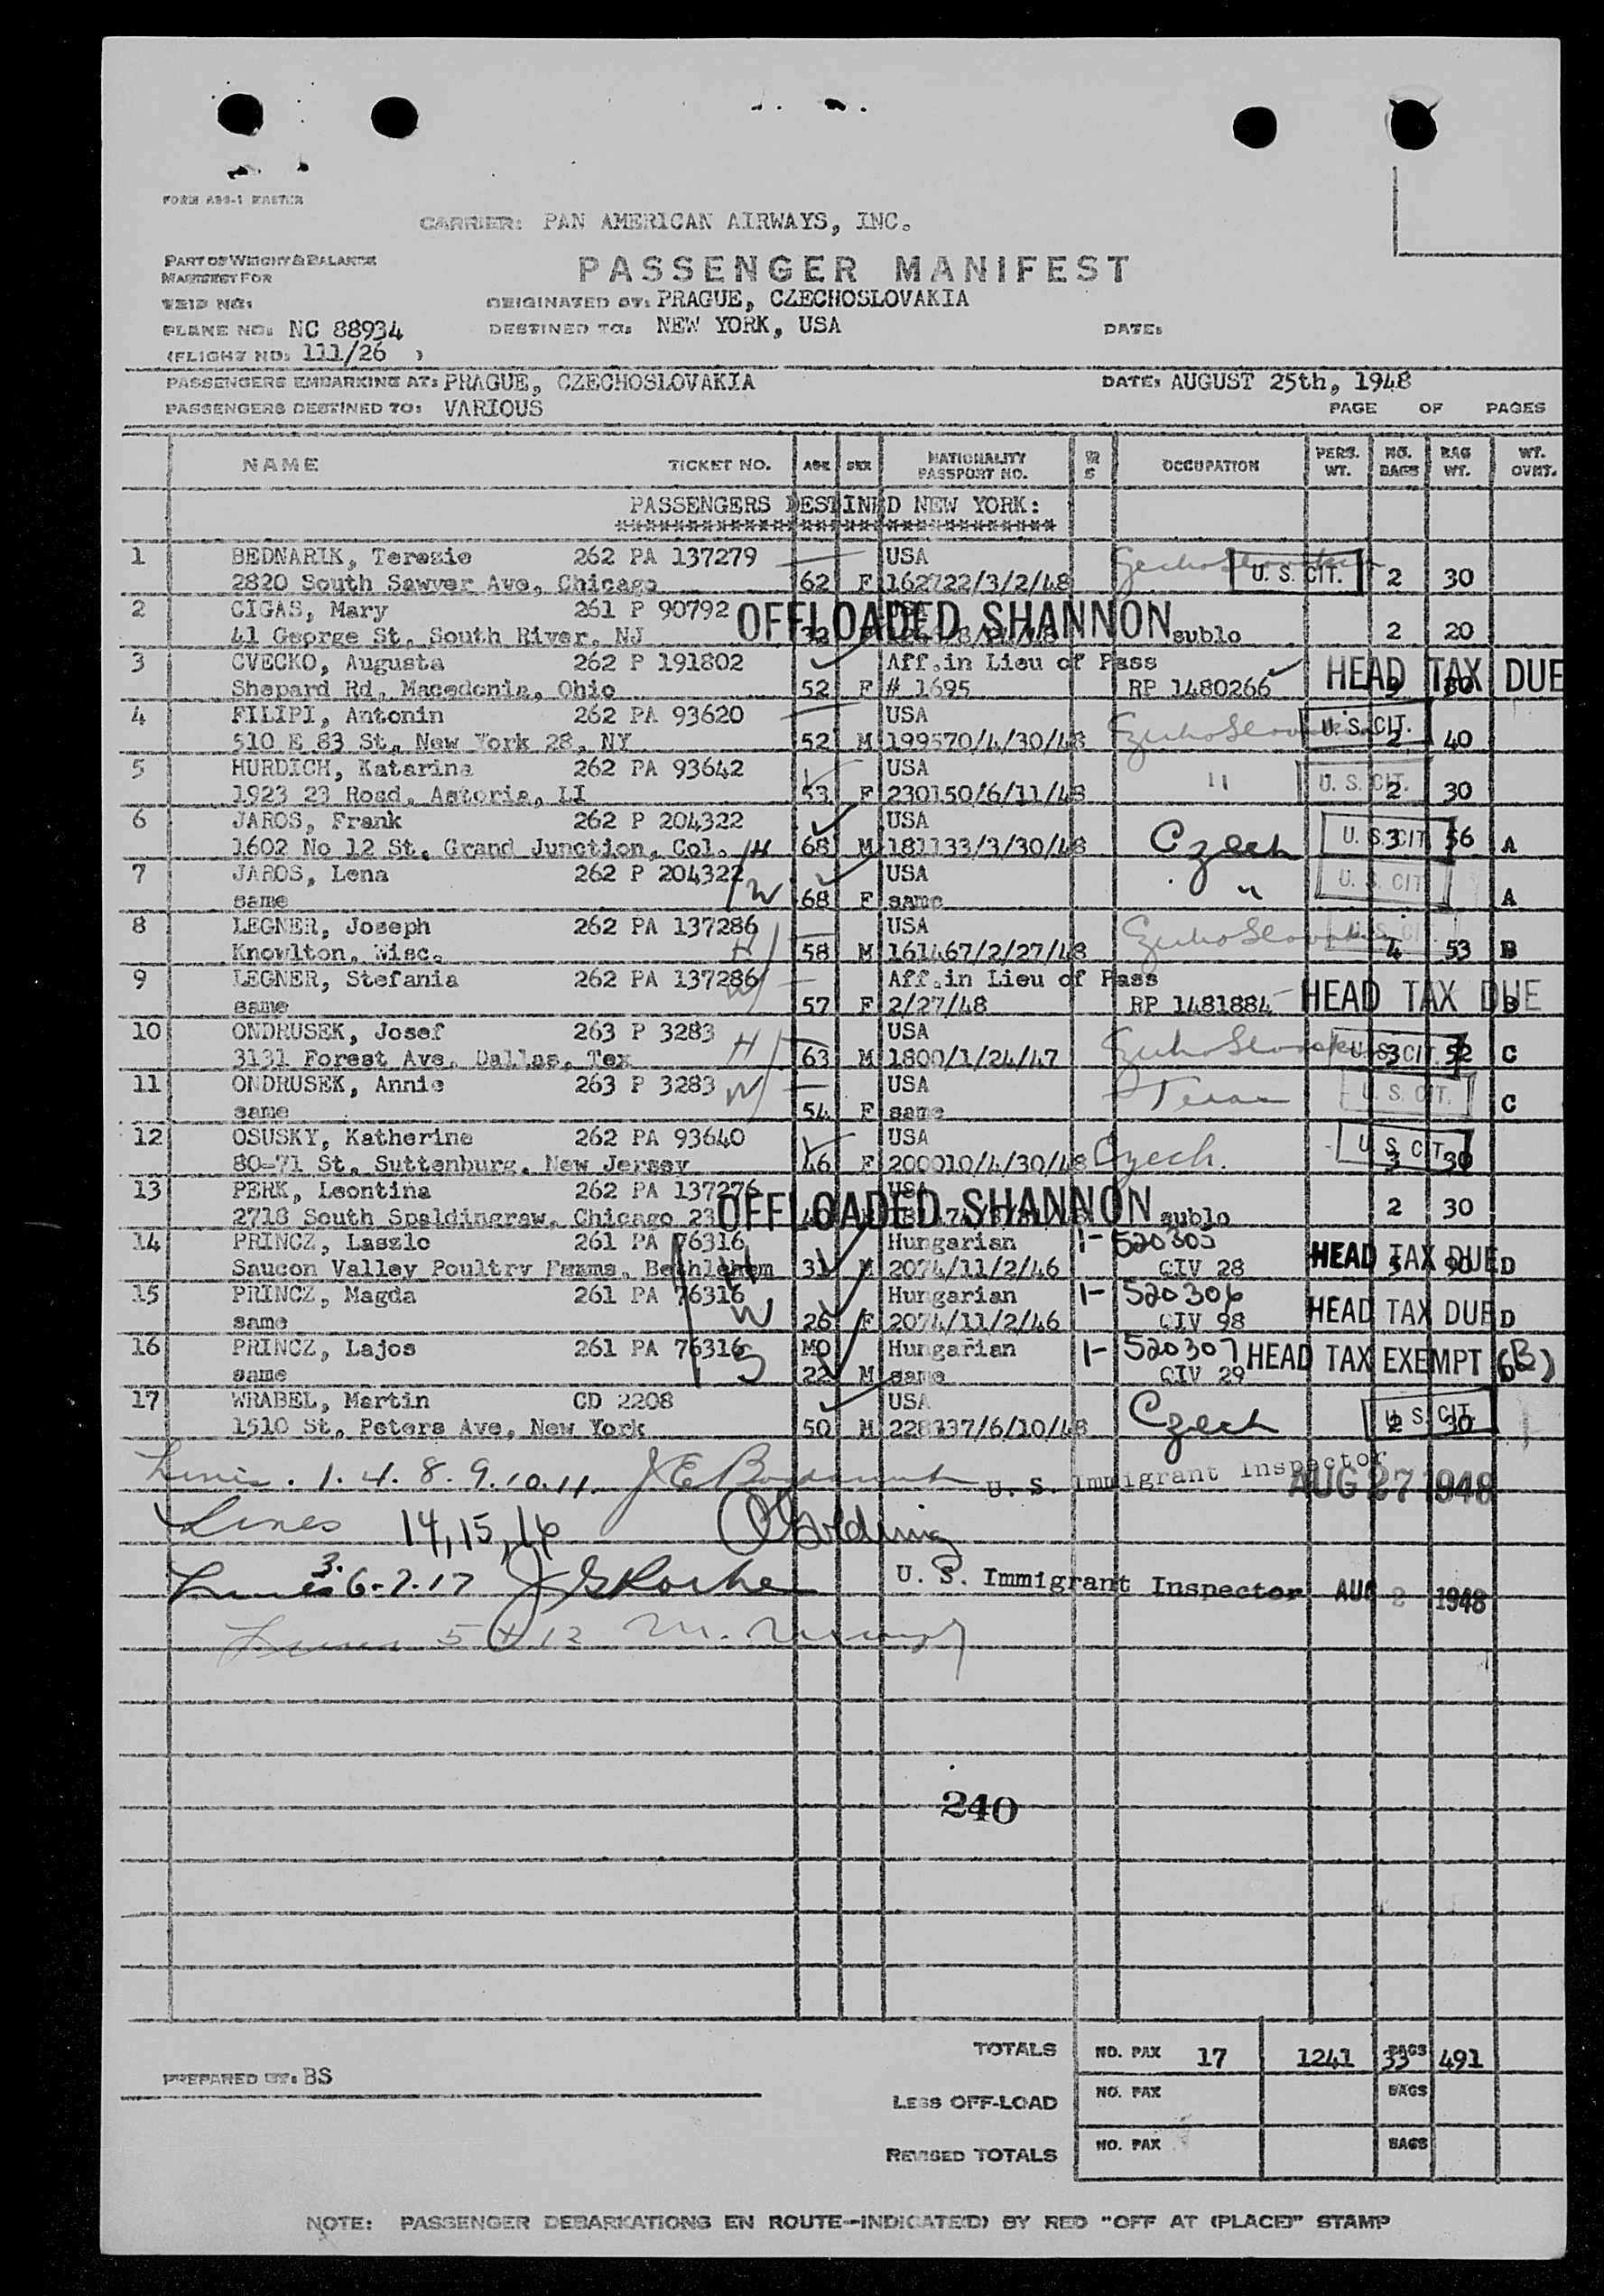 FORM ABS-1 MASTER
CARRIER: PAN AMERICAN AIRWAYS, INC.
PART OF WEIGHT & BALANCE
MANIFEST FOR
PASSENGER MANIFEST
TRIP NO:
ORIGINATED BY: PRAGUE, CZECHOSLOVAKIA
PLANE NO: NC 88934 DESTINED TO: NEW YORK, USA DATE:
(FLIGHT NO: 111/26 )
PASSENGERS EMBARKING AT: PRAGUE, CZECHOSLOVAKIA DATE: AUGUST 25th, 1948
PASSENGERS DESTINED TO: VARIOUS PAGE OF PAGES
NAME TICKET NO. AGE SEX NATIONALITY PASSPORT NO. OCCUPATION PERS. WT. NO. BAGS BAG WT. WT. OVNT.
PASSENGERS DESTINED NEW YORK:
1 BEDNARIK, Terezie 262 PA 137279 USA Czechoslovakia
2820 South Sawyer Ave, Chicago 62 F 162722/3/2/48 U. S. CIT. 2 30
2 CIGAS, Mary 261 P 90792 OFFLOADED SHANNON
41 George St, South River, NJ sublo 2 20
3 CVECKO, Augusta 262 P 191802 Aff.in Lieu of Pass HEAD TAX DUE
Shepard Rd, Macedonia, Ohio 52 F # 1695 RP 1480266
4 FILIPI, Antonin 262 PA 93620 USA Czechoslovakia U. S. CIT.
510 E 83 St, New York 28, NY 52 M 199570/4/30/48 2 40
5 HURDICH, Katarina 262 PA 93642 USA " U. S. CIT.
1923 23 Road, Astoria, LI 53 F 230150/6/11/48 2 30
6 JAROS, Frank 262 P 204322 USA Czech U. S. CIT.
1602 No 12 St, Grand Junction, Col. H 68 M 181133/3/30/48 3 56 A
7 JAROS, Lena 262 P 204322 USA " U. S. CIT
same W 68 F same A
8 LEGNER, Joseph 262 PA 137286 USA Czechoslovakia
Knowlton, Wisc. H 58 M 161467/2/27/48 4 53 B
9 LEGNER, Stefania 262 PA 137286 Aff.in Lieu of Pass HEAD TAX DUE
same W 57 F 2/27/48 RP 1481884 B
10 ONDRUSEK, Josef 263 P 3283 USA Czechoslovakia U. S. CIT.
3131 Forest Ave, Dallas, Tex H 63 M 1800/1/24/47 3 52 C
11 ONDRUSEK, Annie 263 P 3283 W USA Texas U. S. CIT.
same 54 F same C
12 OSUSKY, Katherine 262 PA 93640 USA Czech. U S CIT
80-71 St, Suttenburg, New Jersey 46 F 200010/4/30/48 3 30
13 PERK, Leontina 262 PA 137276 OFFLOADED SHANNON
2718 South Spaldingraw, Chicago 23 sublo 2 30
14 PRINCZ, Laszlo 261 PA 76316 Hungarian 1- 520305 HEAD TAX DUE
Saucon Valley Poultry Farms, Bethlehem H 31 M 2074/11/2/46 QIV 28 D
15 PRINCZ, Magda 261 PA 76316 Hungarian 1- 520306 HEAD TAX DUE
same W 26 F 2074/11/2/46 QIV 98 D
16 PRINCZ, Lajos 261 PA 76316 S MO Hungarian 1- 520307 HEAD TAX EXEMPT (B)
same 22 M same QIV 29
17 WRABEL, Martin CD 2208 USA Czech U. S. CIT.
1510 St, Peters Ave, New York 50 M 228337/6/10/48 2 30
Lines. 1. 4. 8. 9. 10. 11. U. S. Immigrant Inspector AUG 27 1948
Lines 14, 15, 16 O Golding
Lines 3. 6-7. 17 U. S. Immigrant Inspector AUG 2 1948
Lines 5 + 12
240
TOTALS NO. PAX 17 1241 35 BAGS 491
PREPARED BY: BS
LESS OFF-LOAD NO. PAX BAGS
REVISED TOTALS NO. PAX BAGS
NOTE: PASSENGER DEBARKATIONS EN ROUTE--INDICATE(D) BY RED "OFF AT (PLACE)" STAMP